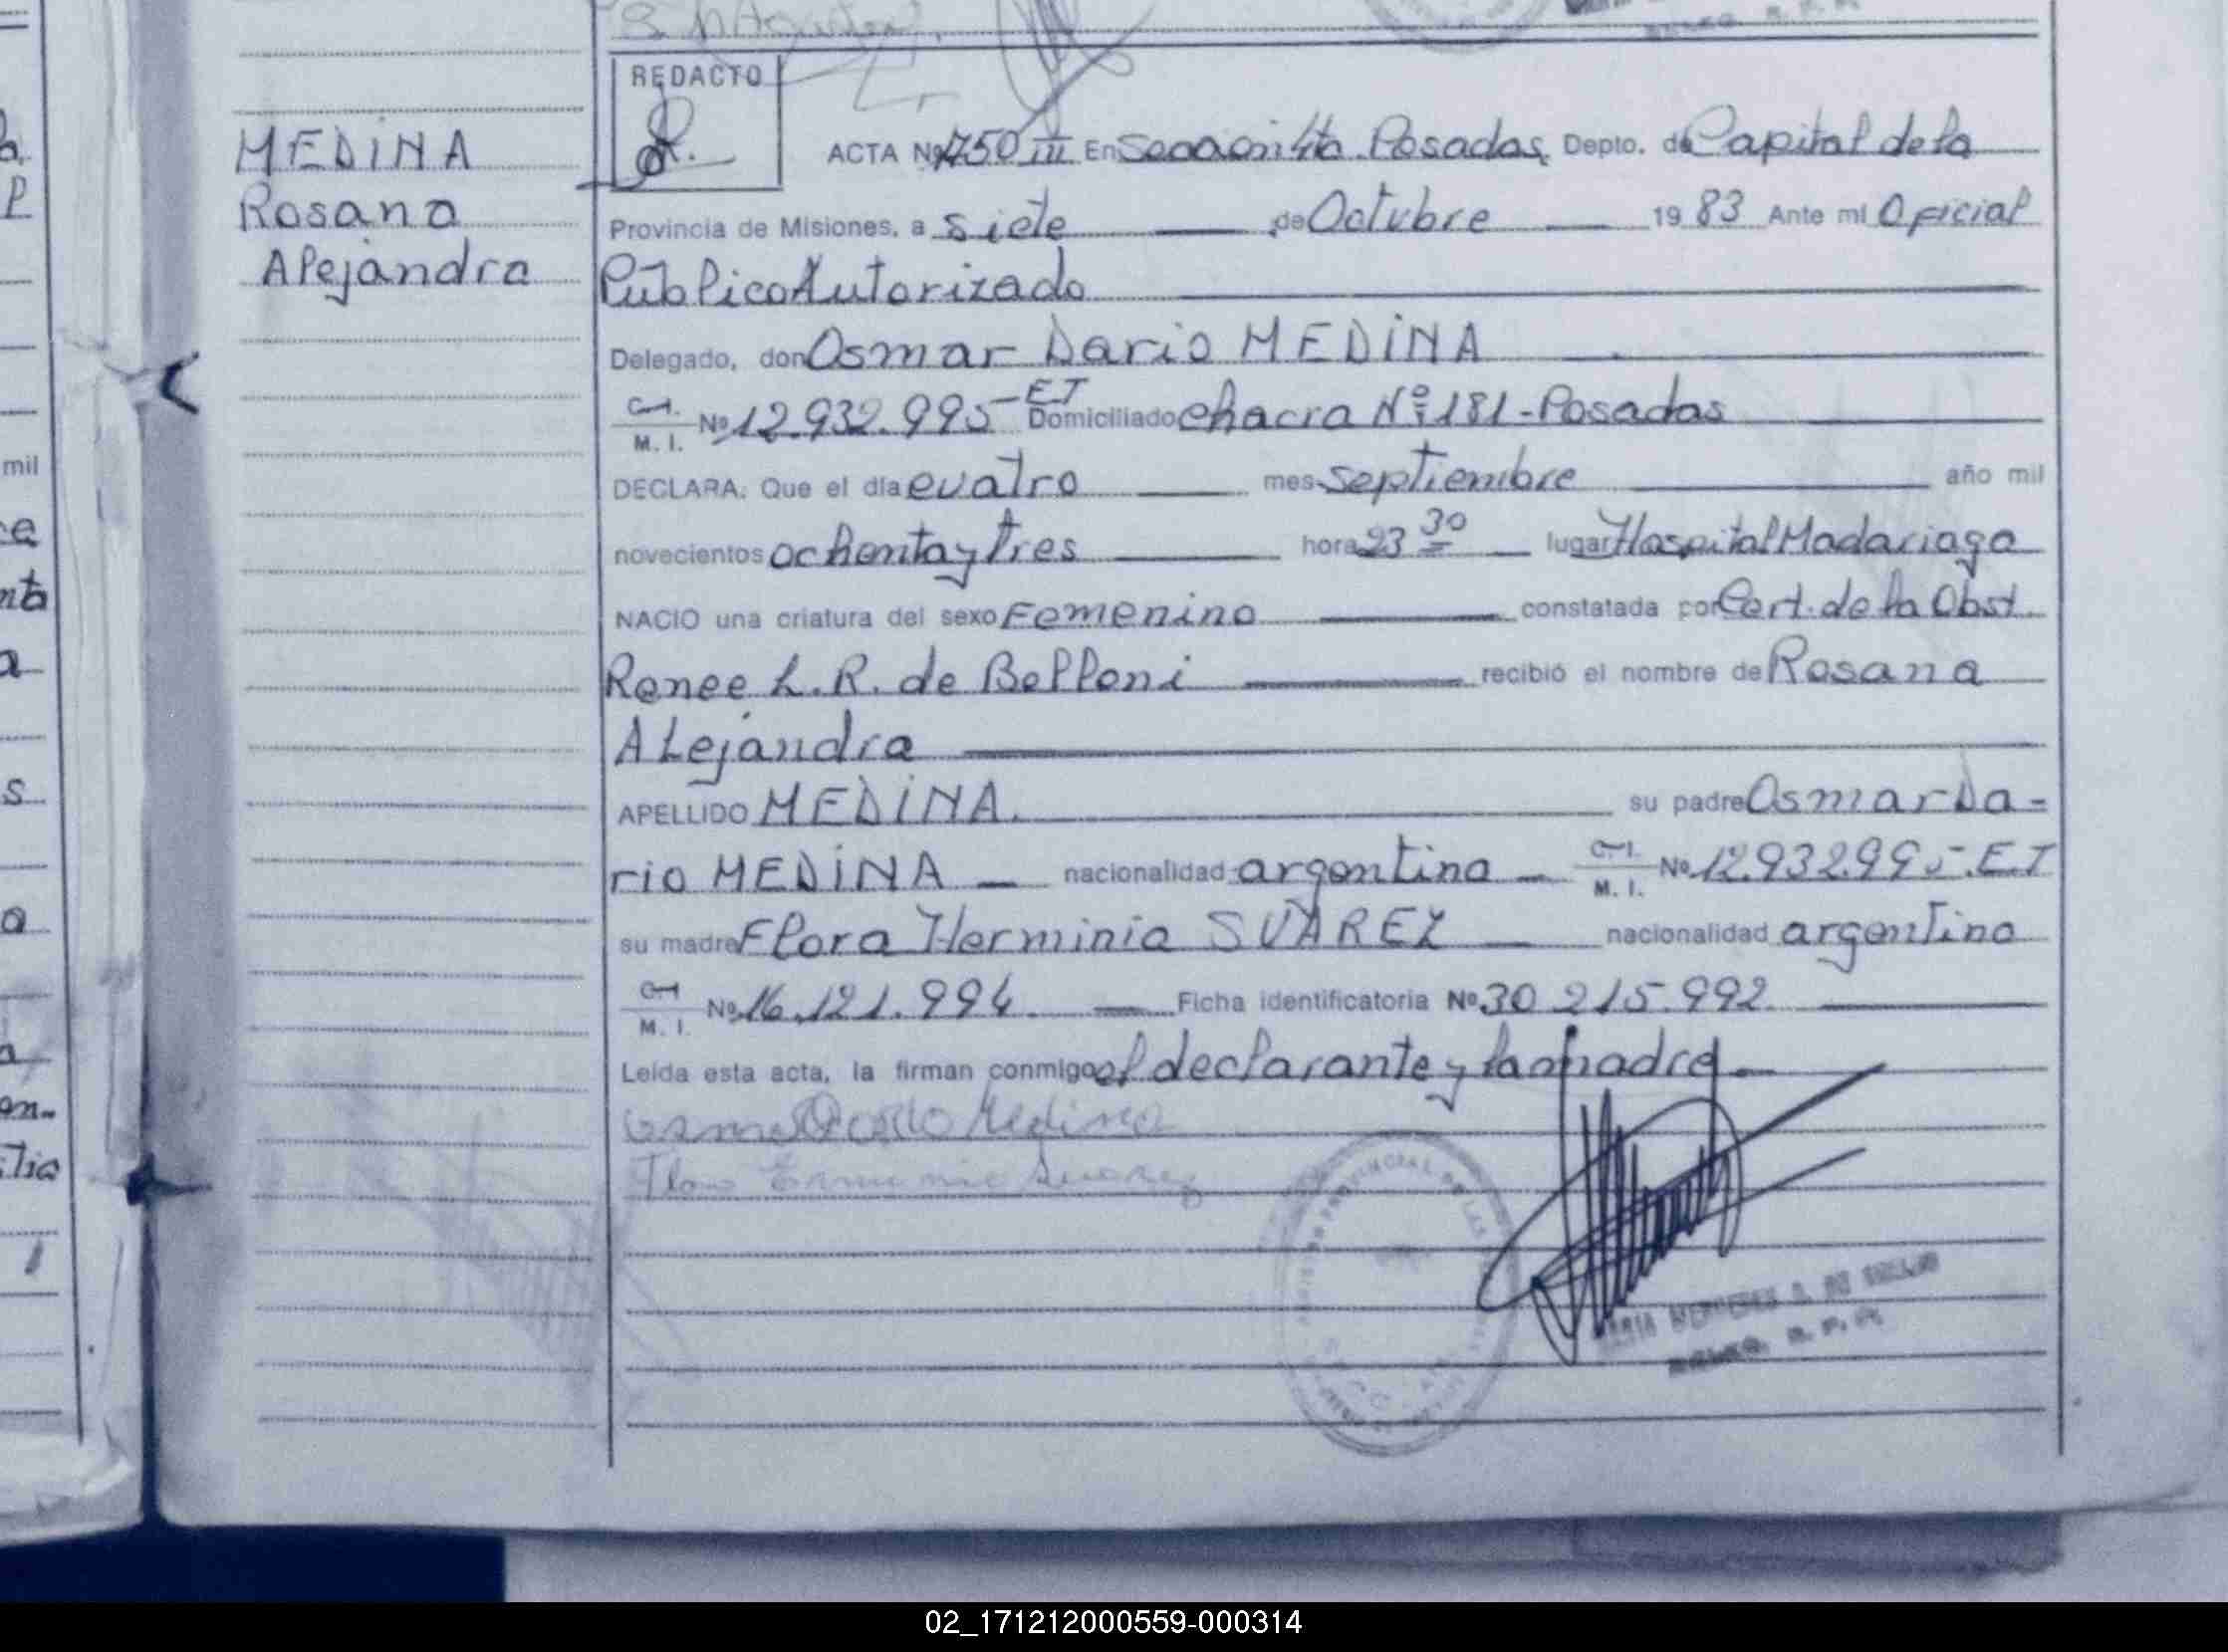 REDACTO
MEDINA
Rosana
Alejandra
ACTA Nº 1750 III En Sección 4ta Posadas, Depto. de Capital de la
Provincia de Misiones, a siete de Octubre 1983 Ante mí Oficial
Publico Autorizado
Delegado, don Osmar Dario MEDINA
C.I. M. I. Nº 12.932.995 - ET Domiciliado chacra Nº 181 - Posadas
DECLARA: Que el día cuatro mes septiembre año mil
novecientos ochenta y tres hora 23 30 lugar Hospital Madariaga
NACIO una criatura del sexo Femenino constatada por Cert. de la Obst.
Renee L. R. de Belloni recibió el nombre de Rosana
Alejandra
APELLIDO MEDINA. su padre Osmar Da-
rio MEDINA nacionalidad argentina C.I. M. I. Nº 12.932.995. ET
su madre Flora Herminia SUAREZ nacionalidad argentina
C.I. M. I. Nº 16.121.994. Ficha identificatoria Nº 30 215.992
Leída esta acta, la firman conmigo el declarante y la madre
Osmar Dario Medina
Suarez
PROVINCIAL DE LAS
02_171212000559-000314